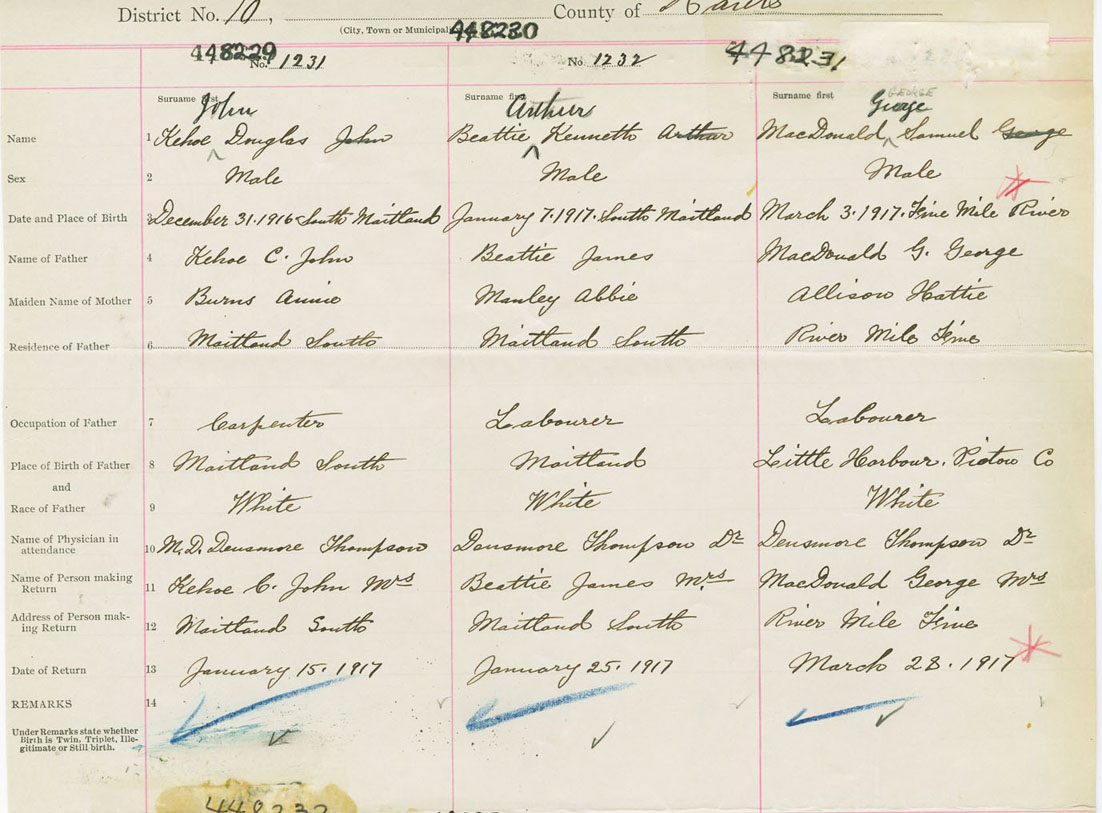 District No. 10, County of Hants
(City, Town or Municipal
448229 448230 448231
No. 1231 No. 1232
Surname first Surname first Surname first GEORGE
John Arthur George
Name 1 Kehoe ^ Douglas John Beattie ^ Kenneth Arthur MacDonald ^ Samuel George
Sex 2 Male Male Male
Date and Place of Birth 3 December 31.1916 South Maitland January 7.1917. South Maitland March 3.1917. Five Mile River
Name of Father 4 Kehoe C. John Beattie James MacDonald G. George
Maiden Name of Mother 5 Burns Annie Manley Abbie Allison Hattie
Residence of Father 6 Maitland South Maitland South River Mile Five
Occupation of Father 7 Carpenter Labourer Labourer
Place of Birth of Father 8 Maitland South Maitland Little Harbour. Pictou Co
and
Race of Father 9 White White White
Name of Physician in
attendance 10 M.D. Densmore Thompson Densmore Thompson Dr Densmore Thompson Dr
Name of Person making
Return 11 Kehoe C. John Mrs Beattie James Mrs MacDonald George Mrs
Address of Person mak-
ing Return 12 Maitland South Maitland South River Mile Five
Date of Return 13 January 15. 1917 January 25. 1917 March 28. 1917
REMARKS 14
Under Remarks state whether
Birth is Twin, Triplet, Ille-
gitimate or Still birth.
448232